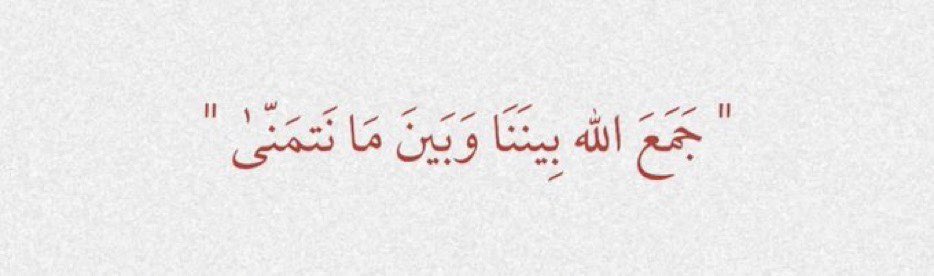 " جَمَعَ الله بِينَنَا وَبَينَ مَا نَتمَنّىٰ "